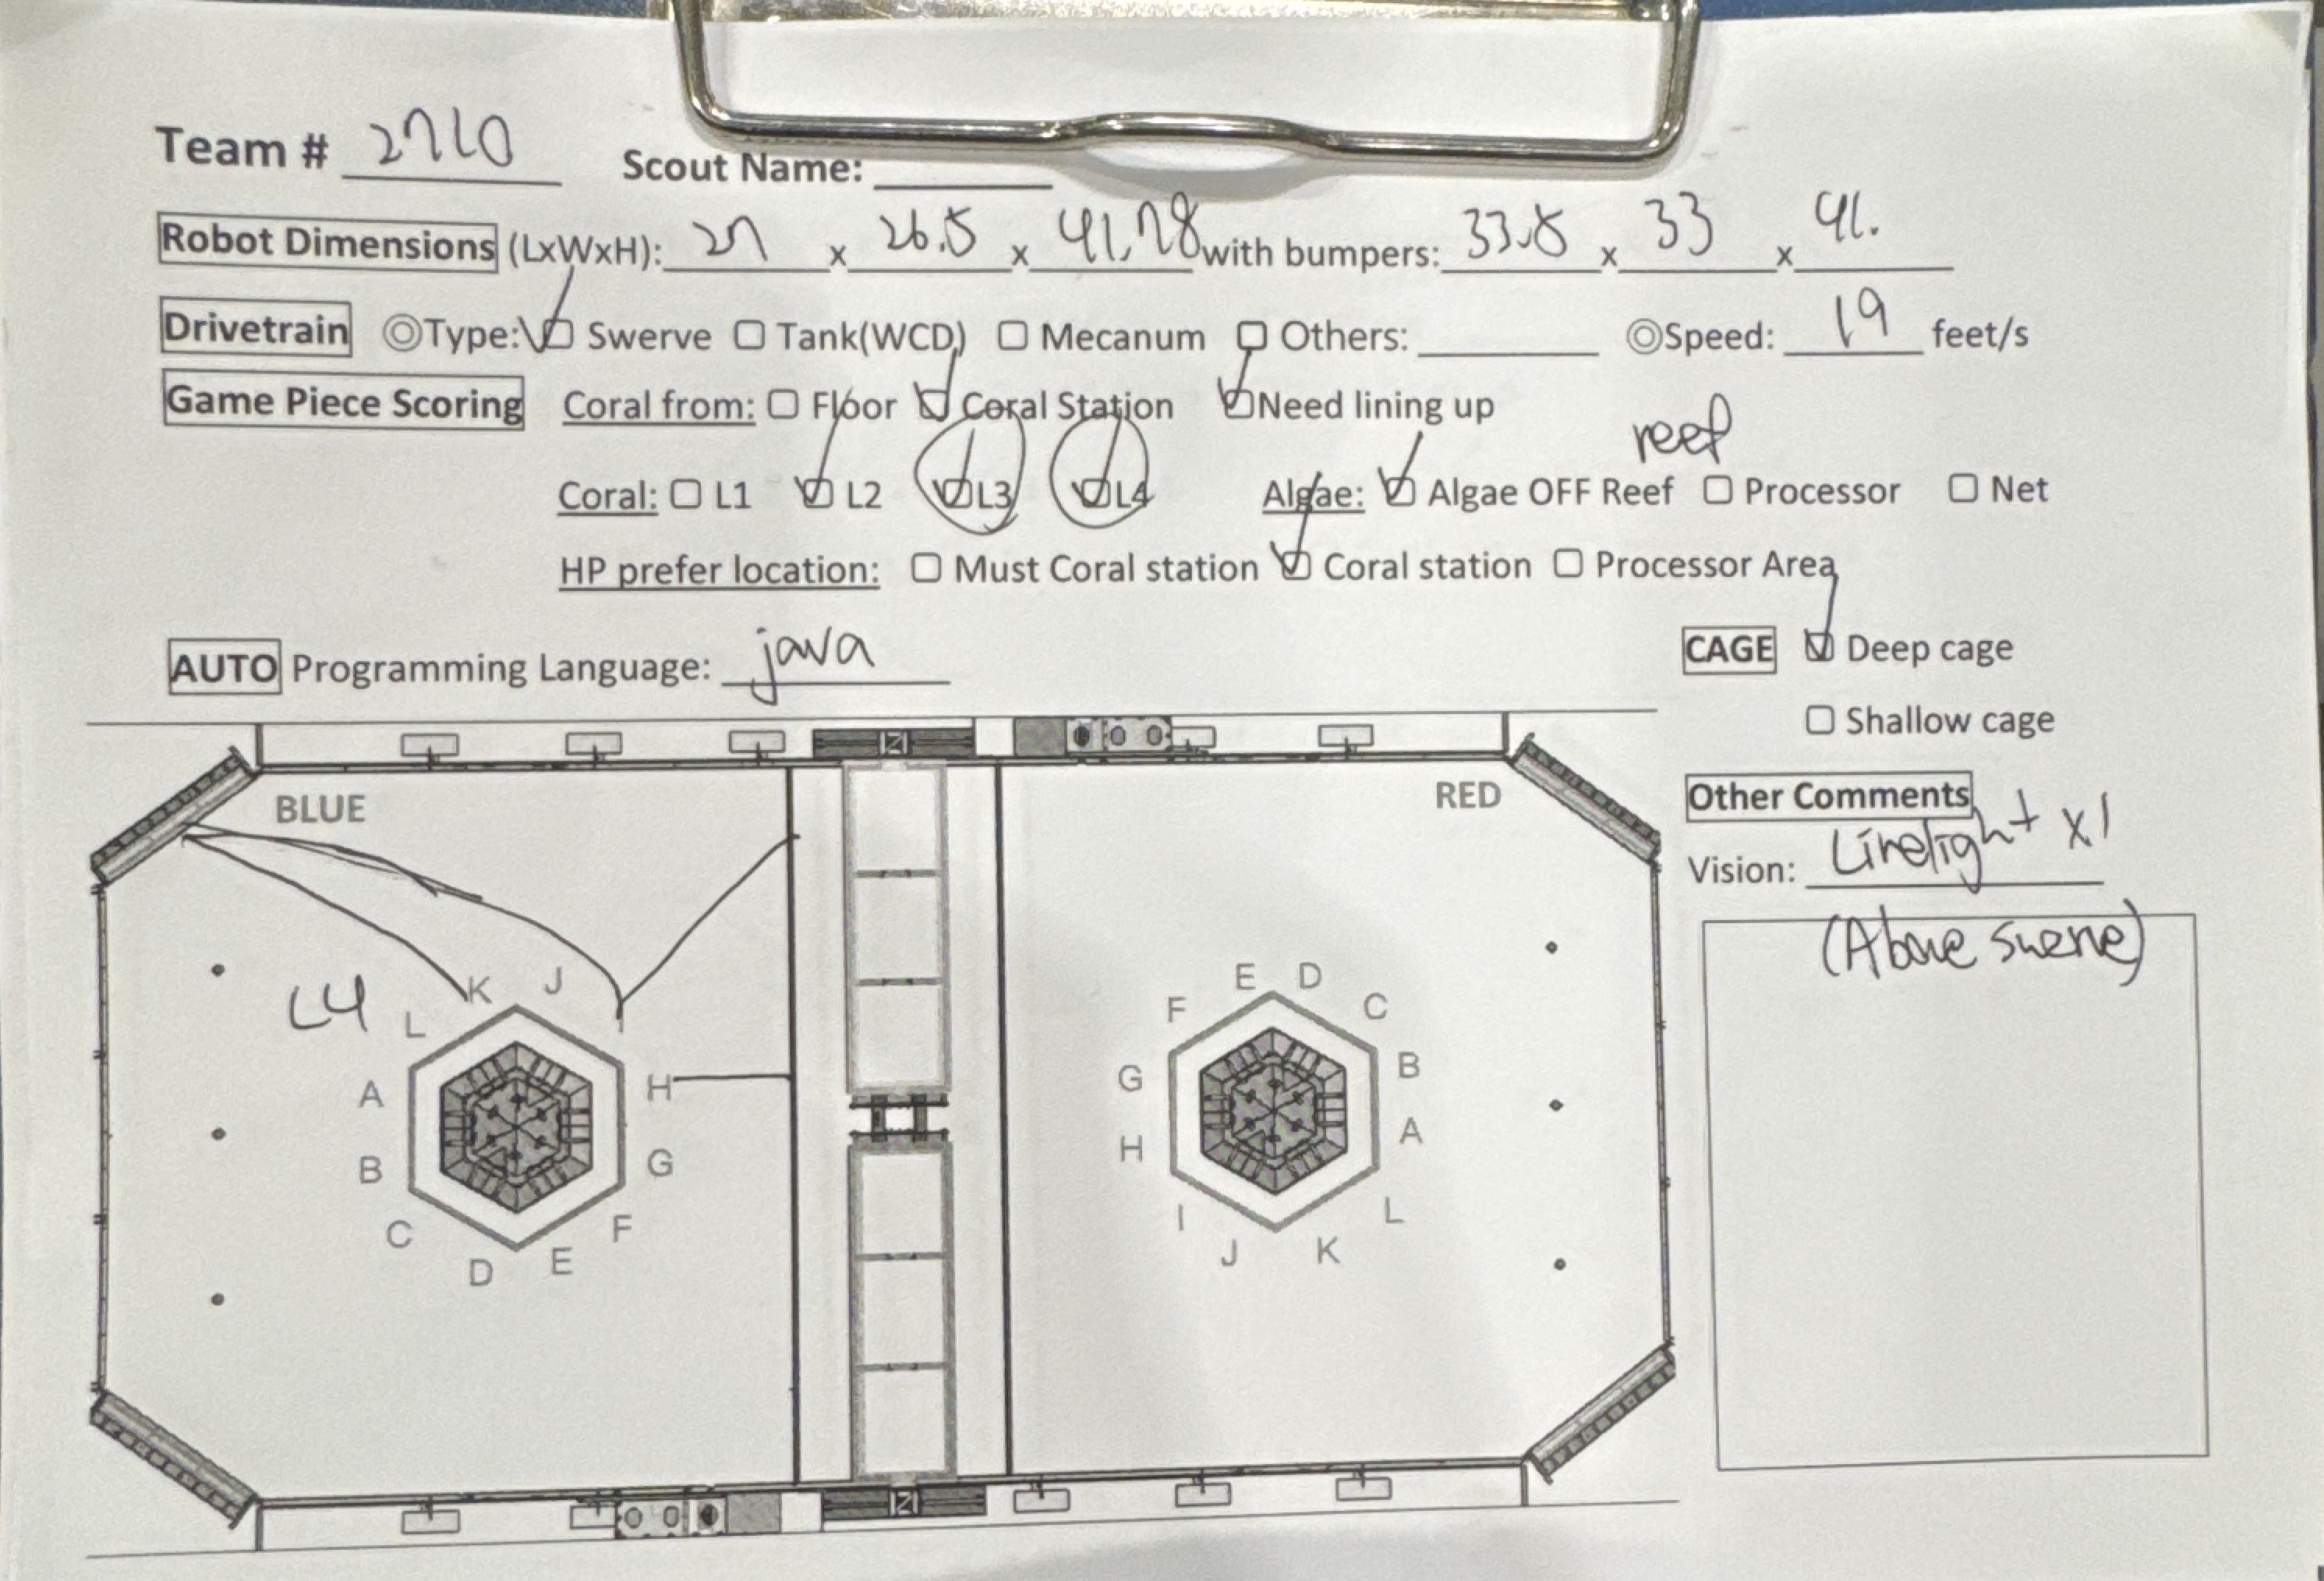 Team # 2710 Scout Name:
Robot Dimensions (LxWxH): 27 x 26.5 x 41.78 with bumpers: 33.5 x 33 x 41.
Drivetrain ◎Type: ☑ Swerve ☐ Tank(WCD) ☐ Mecanum ☐ Others: ◎Speed: 19 feet/s
Game Piece Scoring Coral from: ☐ Floor ☑ Coral Station ☑ Need lining up
reef
Coral: ☐ L1 ☑ L2 ☑ L3 ☑ L4 Algae: ☑ Algae OFF Reef ☐ Processor ☐ Net
HP prefer location: ☐ Must Coral station ☑ Coral station ☐ Processor Area
AUTO Programming Language: java
CAGE ☑ Deep cage
☐ Shallow cage
BLUE RED
Other Comments
Vision: Limelight x1
(Above swerve)
L4
K J
L I
A H
B G
C F
D E
E D
F C
G B
H A
I L
J K